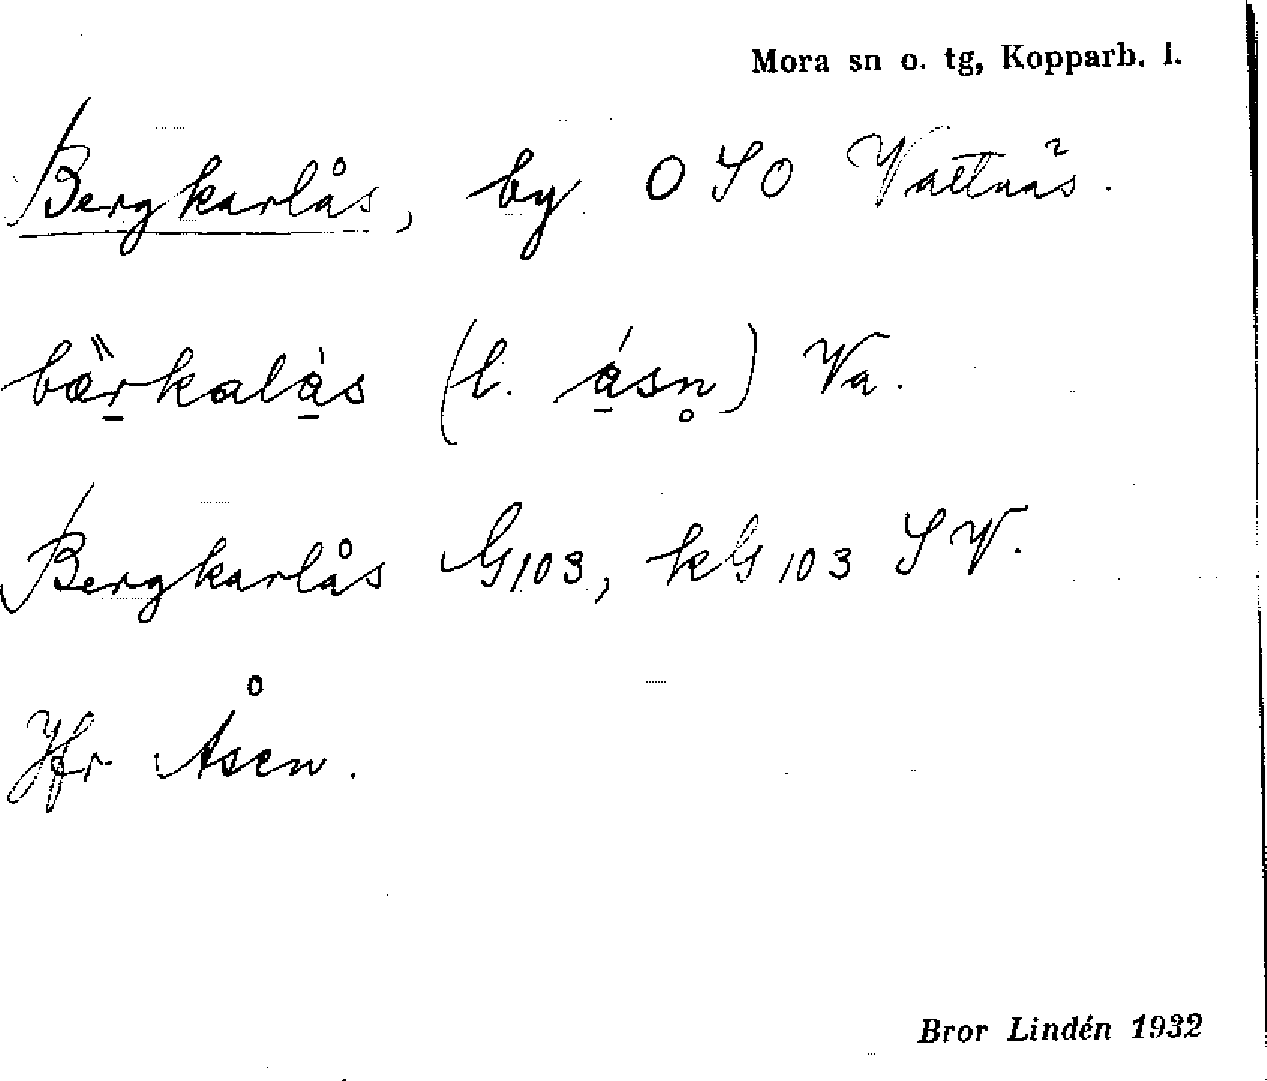 Mora sn o. tg, Kopparb. l.
Bergkarlås, by OSO Vattnäs.
bæ̀r̠kalà̠s (l. á̠sn̥) Va.
Bergkarlås G103, kG103 SV.
Jfr Åsen.
Bror Lindén 1932